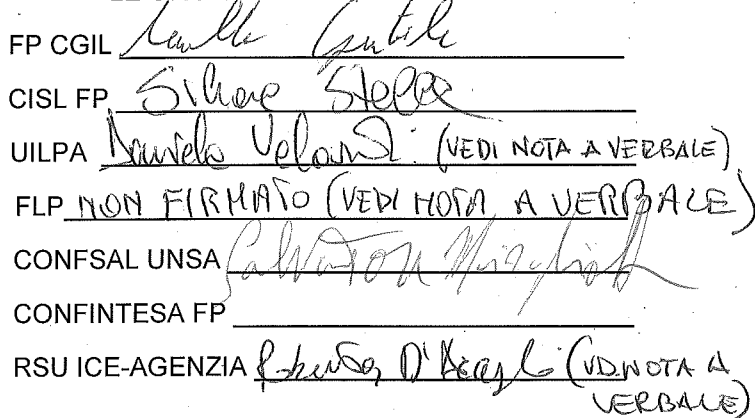 FP CGIL
CISL FP Silvare Stella
UILPA Daniela Volandi (VEDI NOTA A VERBALE)
FLP NON FIRMATO (VEDI NOTA A VERBALE)
CONFSAL UNSA Salvatore
CONFINTESA FP
RSU ICE-AGENZIA (VD. NOTA A
VERBALE)